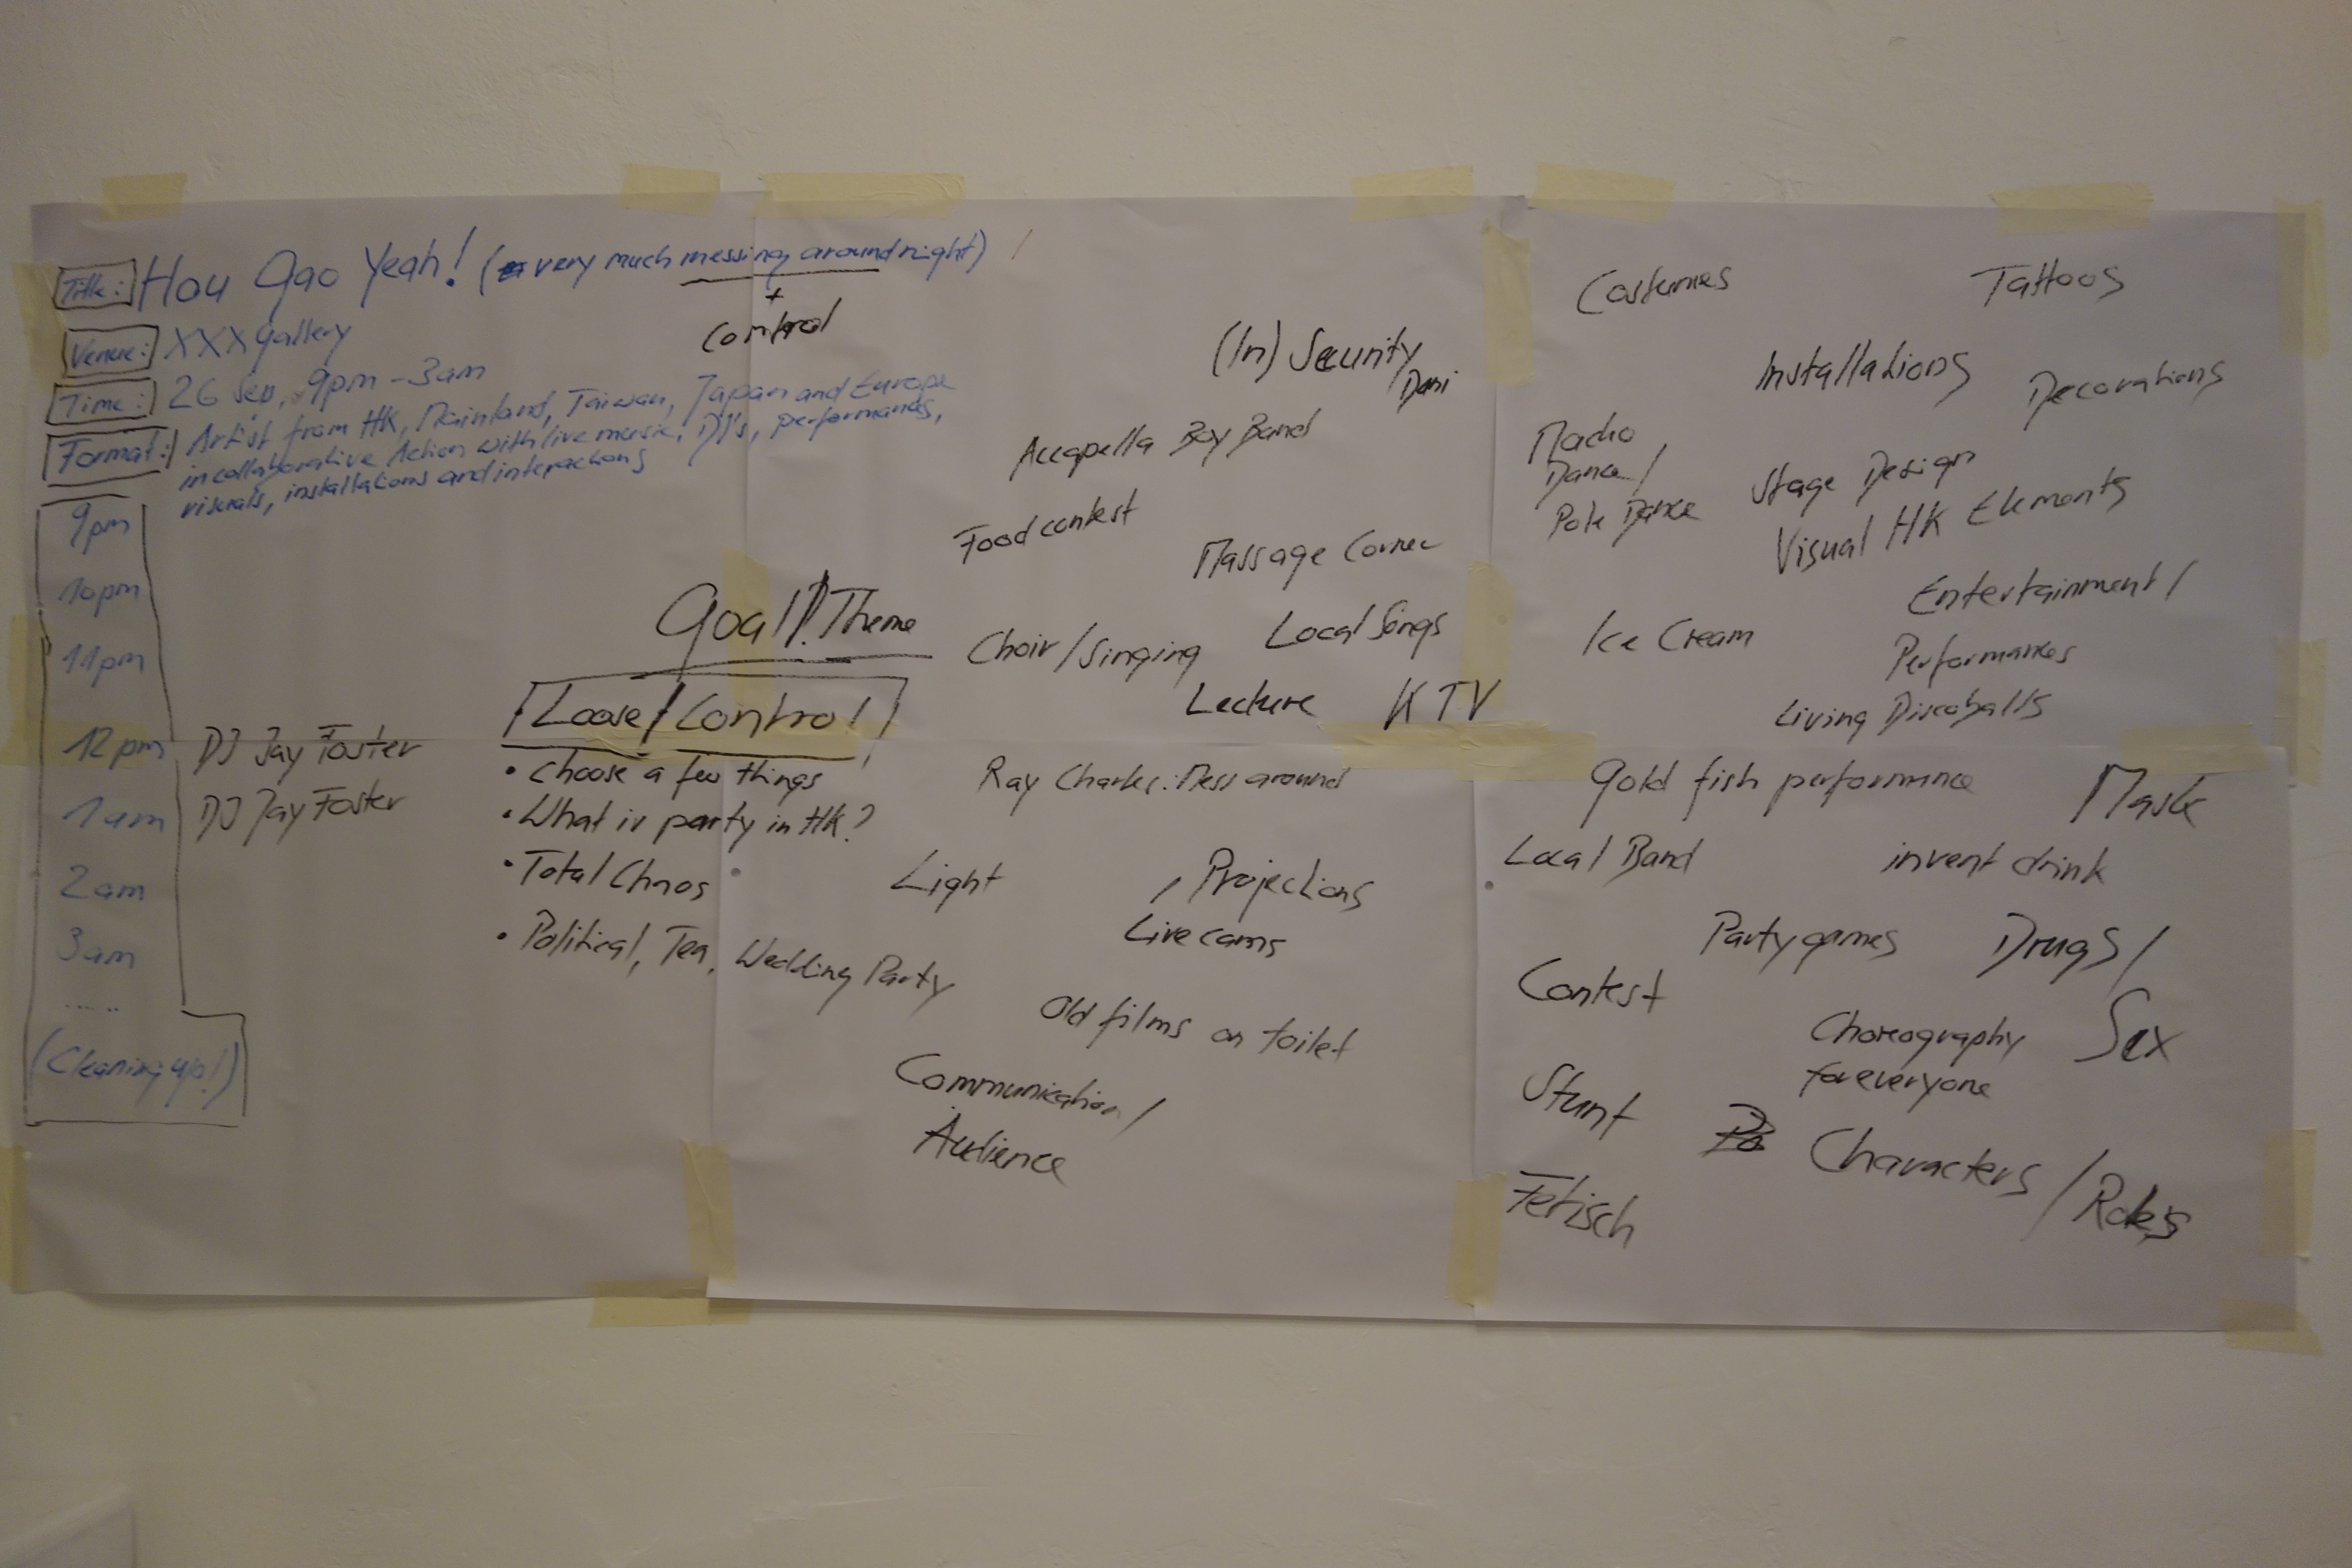 Title: Hou Gao Yeah! (very much messing around night)
+
control
Venue: XXX gallery
Time: 26 Sep, 9pm - 3am
Format: Artist from HK, Mainland, Taiwan, Japan and Europe
in collaborative Action with live music, DJ's, performances,
visuals, installations and interactions
9pm
10pm
11pm
12pm DJ Jay Foster
1am DJ Jay Foster
2am
3am
......
(Cleaning up!)
Goal! Theme
Loose/Control
• Choose a few things
• What is party in HK?
• Total Chaos
• Political, Tea, Wedding Party
(In) Security
Dani
Accapella Boy Band
Food contest
Massage Corner
Choir/Singing
Local Songs
Lecture
KTV
Ray Charles: Mess around
Light
, Projections
Live cams
Old films on toilet
Communication/
Audience
Costumes
Tattoos
Installations
Decorations
Macho
Dance/
Pole Dance
Stage Design
Visual HK Elements
Entertainment/
Performances
Ice Cream
Living Discoballs
gold fish performance
Mask
Local Band
invent drink
Party games
Drugs/
Sex
Contest
Choreography
for everyone
Stunt
Characters/Roles
Fetisch